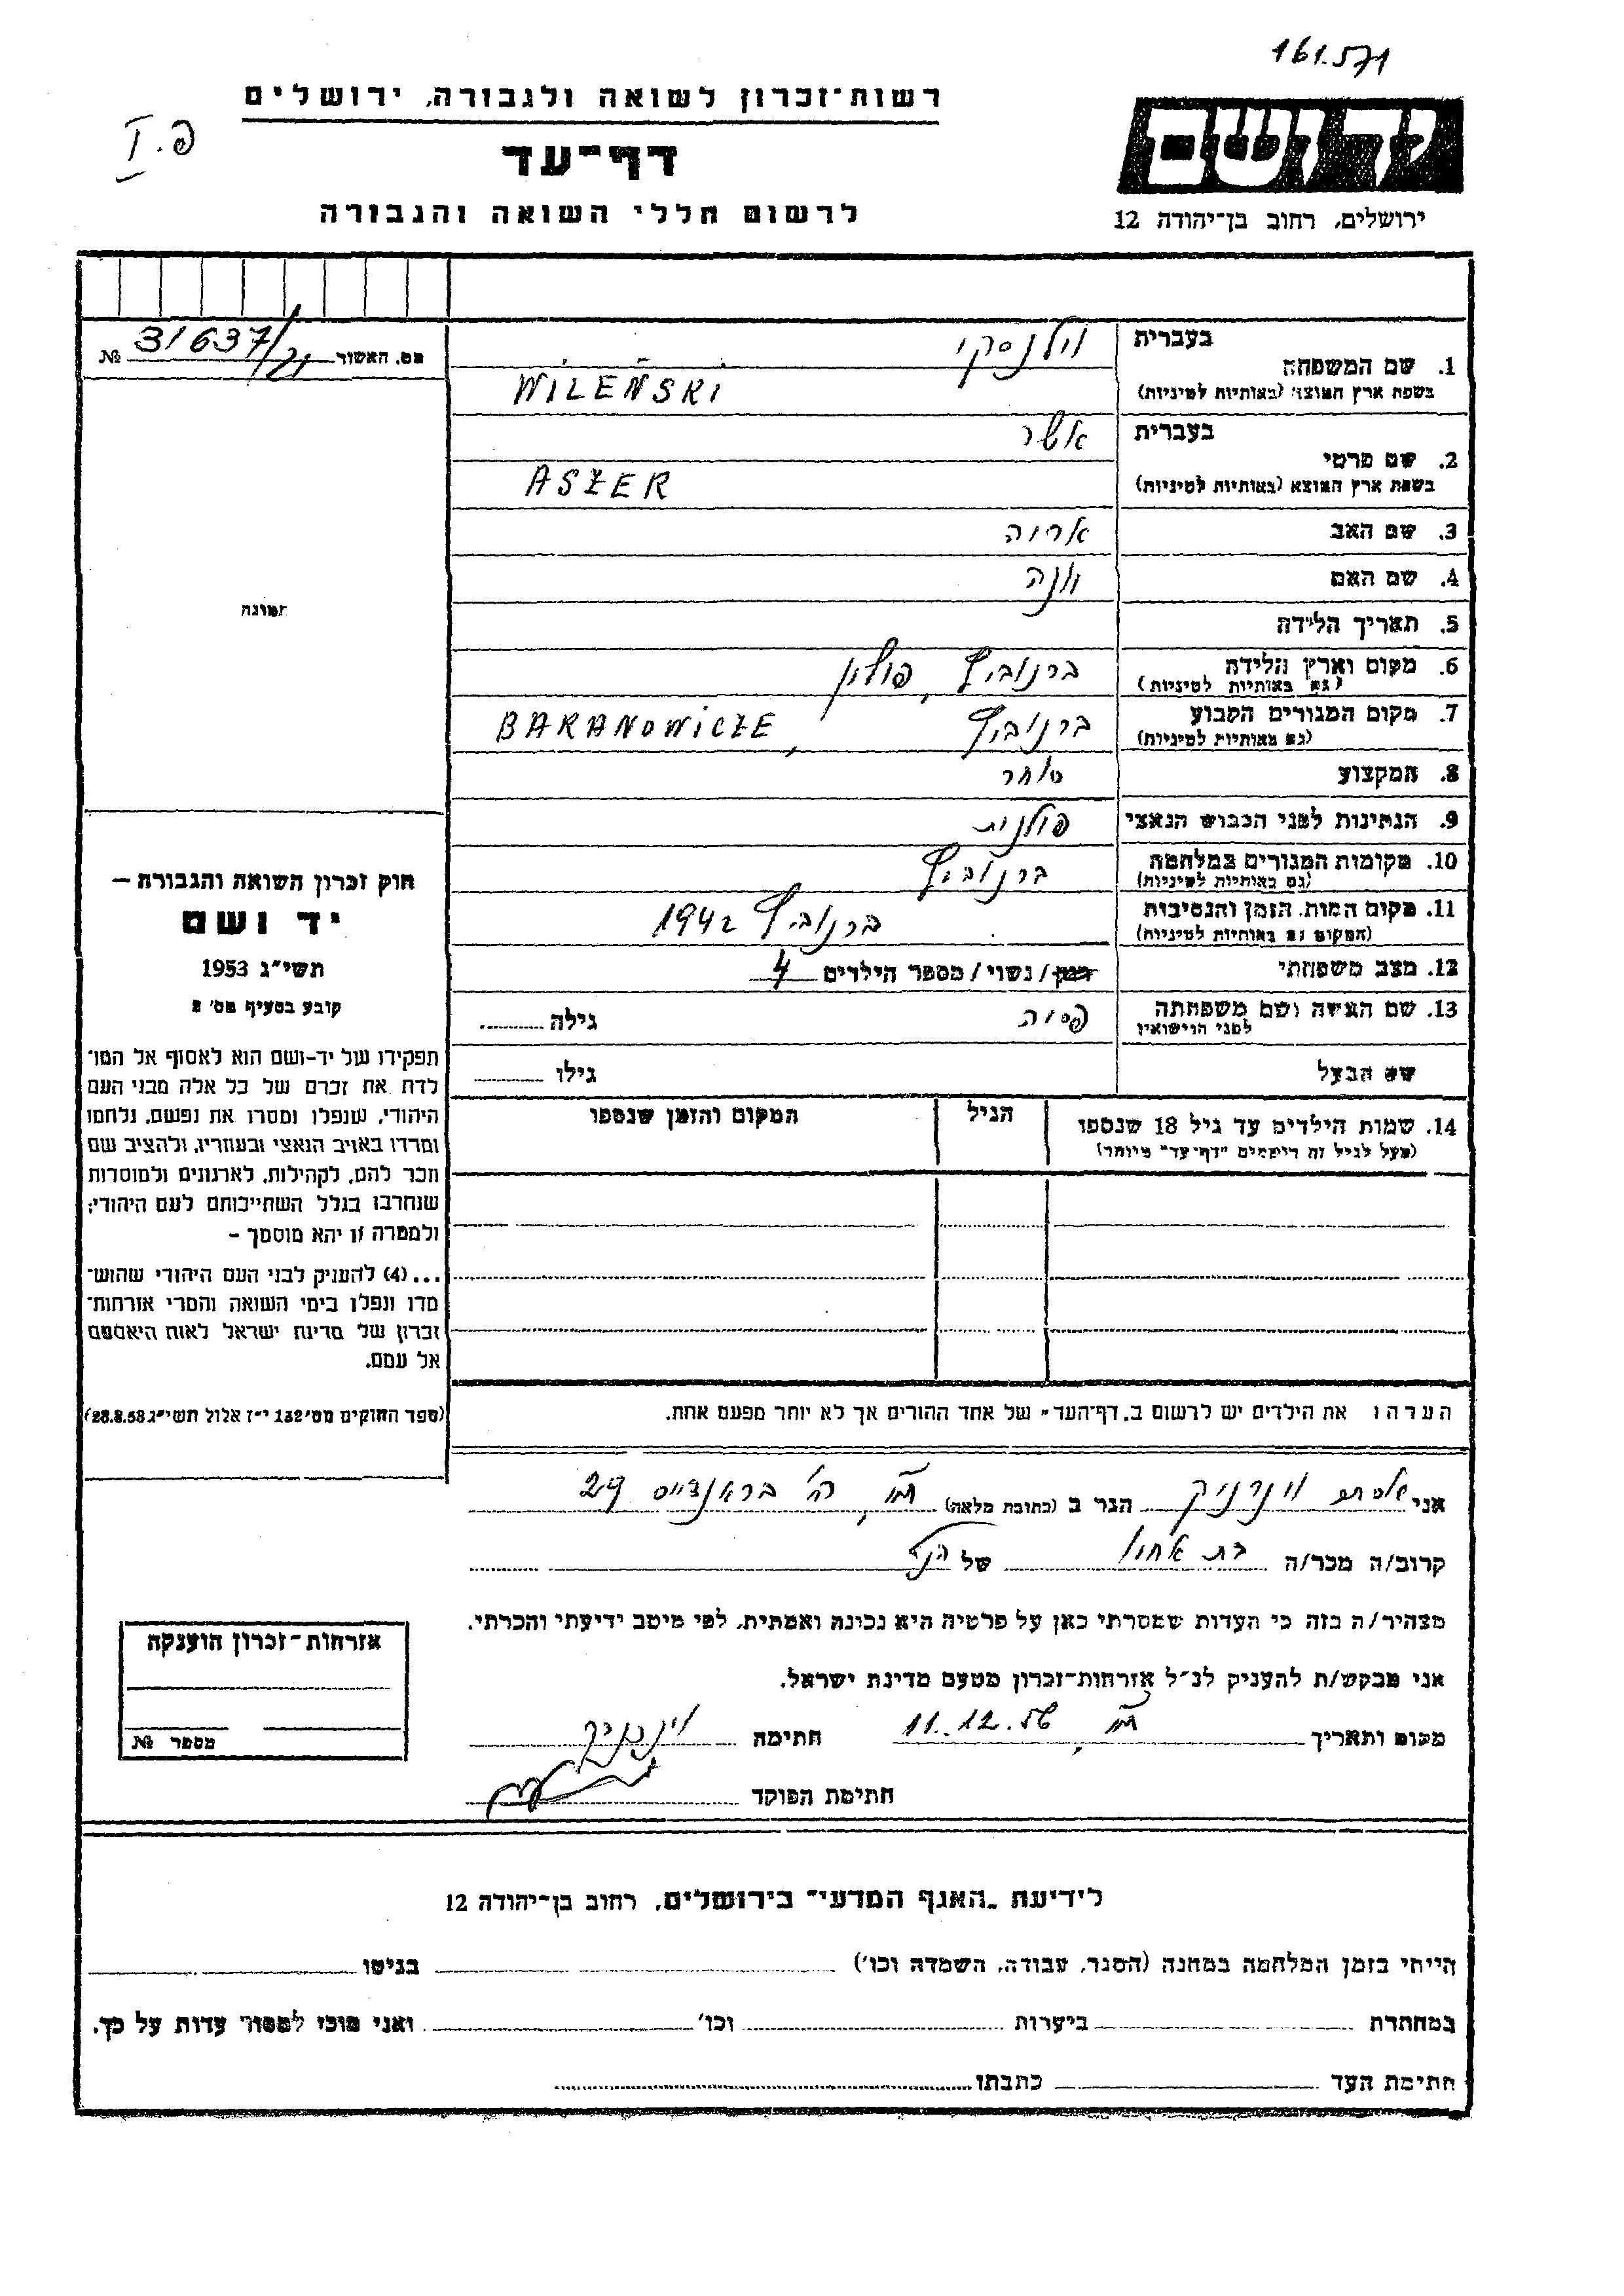 161.571
רשות־זכרון לשואה ולגבורה, ירושלים
פ. I
דף־עד
ידושם
לרשום חללי השואה והגבורה
ירושלים, רחוב בן־יהודה 12
בעברית וילנסקי
מס. האשור 31637/21 №
1. שם המשפחה
בשפת ארץ המוצא (באותיות לטיניות) WILEŃSKI
בעברית אשר
2. שם פרטי
בשפת ארץ המוצא (באותיות לטיניות) ASZER
3. שם האב אריה
4. שם האם
תמונה
5. תאריך הלידה
6. מקום וארץ הלידה ברנוביץ, פולין
(גם באותיות לטיניות)
7. מקום המגורים הקבוע ברנוביץ, BARANOWICZE
(גם באותיות לטיניות)
8. המקצוע סוחר
9. הנתינות לפני הכבוש הנאצי פולנית
10. מקומות המגורים במלחמה ברנוביץ
(גם באותיות לטיניות)
11. מקום המות, הזמן והנסיבות ברנוביץ 1942
(המקום גם באותיות לטיניות)
12. מצב משפחתי רווק/נשוי/מספר הילדים 4
13. שם האשה ושם משפחתה פסיה גילה
לפני הנישואין
שם הבעל גילו
14. שמות הילדים עד גיל 18 שנספו הגיל המקום והזמן שנספו
(מעל לגיל זה רושמים "דף־עד" מיוחד)
חוק זכרון השואה והגבורה —
יד ושם
תשי״ג 1953
קובע בסעיף מס׳ 2
תפקידו של יד-ושם הוא לאסוף אל המו־
לדת את זכרם של כל אלה מבני העם
היהודי, שנפלו ומסרו את נפשם, נלחמו
ומרדו באויב הנאצי ובעוזריו, ולהציב שם
וזכר להם, לקהילות, לארגונים ולמוסדות
שנחרבו בגלל השתייכותם לעם היהודי;
ולמטרה זו יהא מוסמך -
...(4) להעניק לבני העם היהודי שהוש־
מדו ונפלו בימי השואה והמרי אזרחות־
זכרון של מדינת ישראל לאות היאספם
אל עמם.
(ספר החוקים מס׳ 132 י״ז אלול תשי״ג 28.8.53)
הערה: את הילדים יש לרשום ב„דף־העד״ של אחד ההורים אך לא יותר מפעם אחת.
אני אסתר וינרניק הגר ב (כתובת מלאה) ת״א, רח׳ בראנדייס 29
קרוב/ה מכר/ה בת אחיו של הנ״ל
מצהיר/ה בזה כי העדות שמסרתי כאן על פרטיה היא נכונה ואמתית, לפי מיטב ידיעתי והכרתי.
אני מבקש/ת להעניק לנ״ל אזרחות־זכרון מטעם מדינת ישראל.
מקום ותאריך ת״א, 11.12.56 חתימה
חתימת הפוקד
אזרחות־זכרון הוענקה
מספר №
לידיעת „האגף המדעי״ בירושלים, רחוב בן־יהודה 12
הייתי בזמן המלחמה במחנה (הסגר, עבודה, השמדה וכו׳) בגיטו
במחתרת ביערות וכו׳ ואני מוכן למסור עדות על כך.
חתימת העד כתבתו